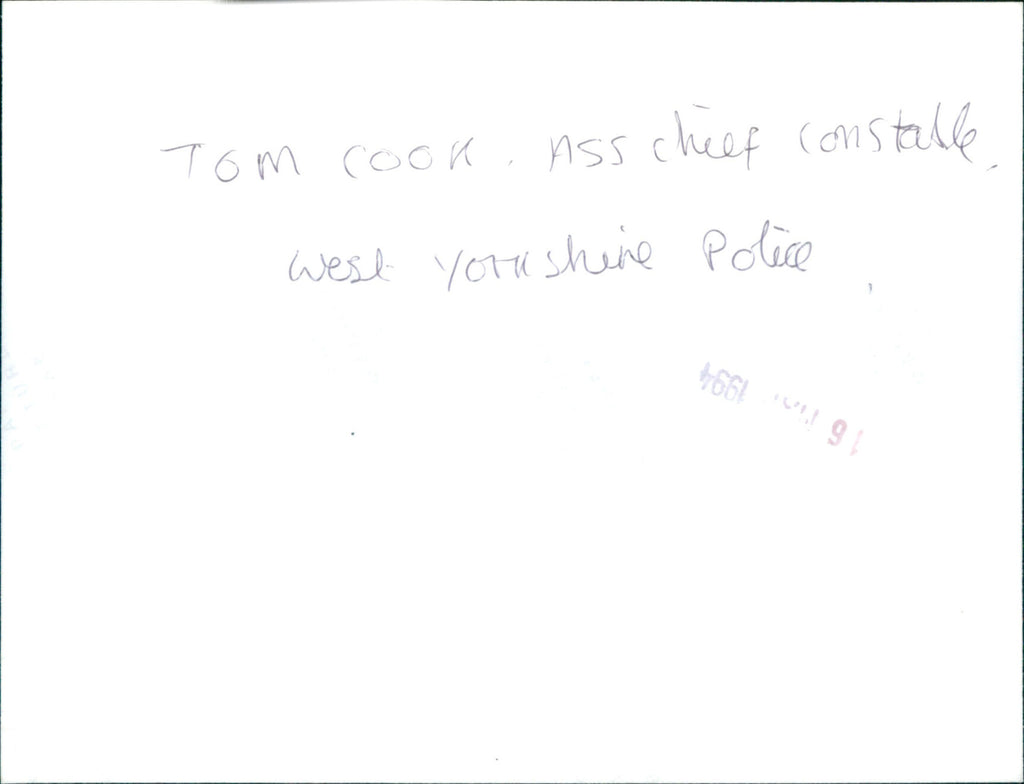 TOM COOK. ASS chief constable.
West Yorkshire Police
16 1994